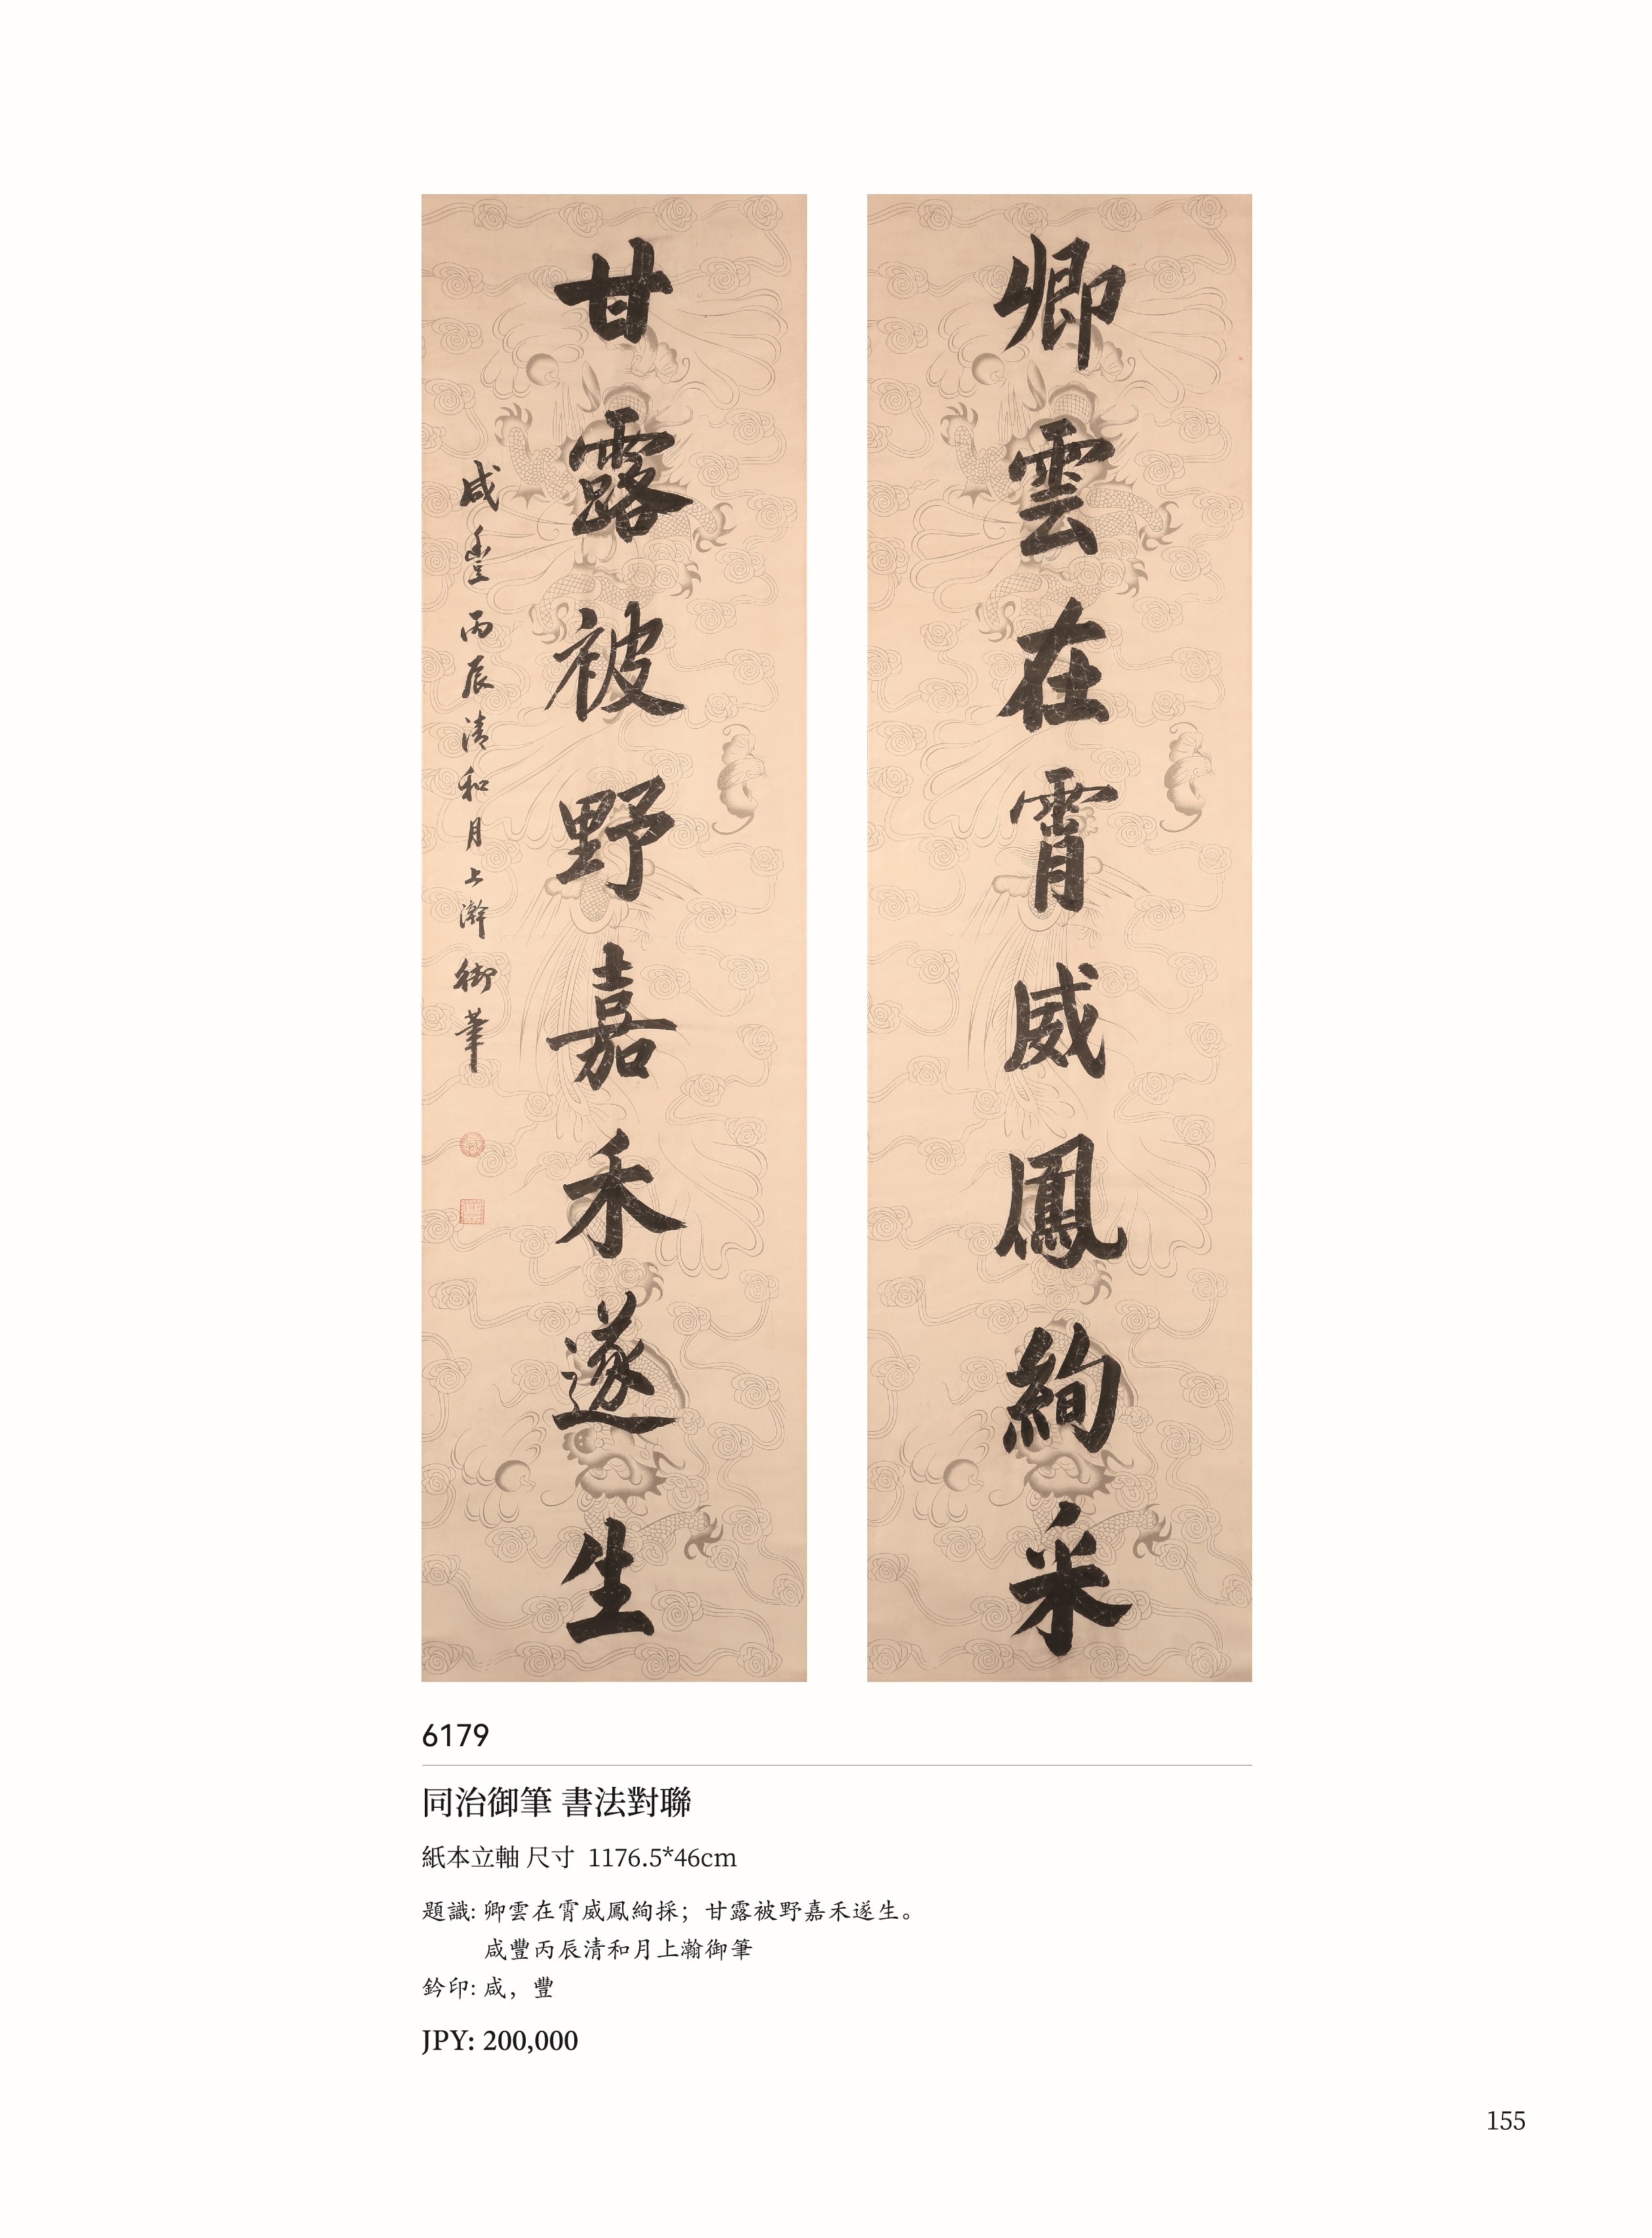 卿雲在霄威鳳絢采
甘露被野嘉禾遂生
咸豐丙辰清和月上澣御筆
6179
同治御筆 書法對聯
紙本立軸 尺寸 1176.5*46cm
題識: 卿雲在霄威鳳絢採；甘露被野嘉禾遂生。
咸豐丙辰清和月上瀚御筆
鈐印: 咸，豐
JPY: 200,000
155